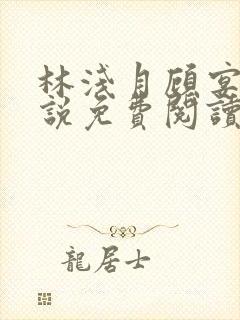 林淺月顧宴
說免費閱讀
龍居士